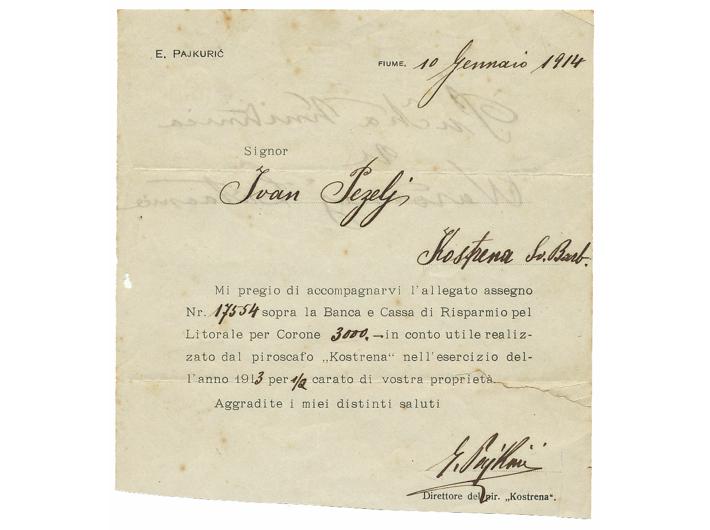 E. PAJKURIĆ
FIUME, 10 Gennaio 1914
Signor
Ivan Pezelj
Kostrena Sv. Barb.
Mi pregio di accompagnarvi l'allegato assegno
Nr. 17554 sopra la Banca e Cassa di Risparmio pel
Litorale per Corone 3000.- in conto utile realiz-
zato dal piroscafo „Kostrena" nell'esercizio del-
l'anno 1913 per 1/2 carato di vostra proprietà
Aggradite i miei distinti saluti
Direttore del pir. „Kostrena".